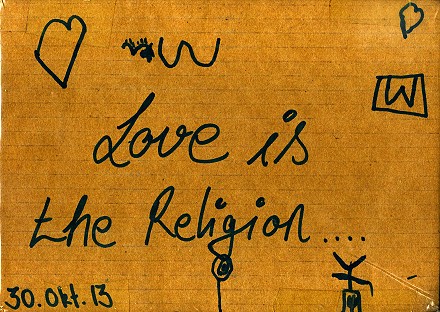 W
Love is
the Religion....
30.Okt.13